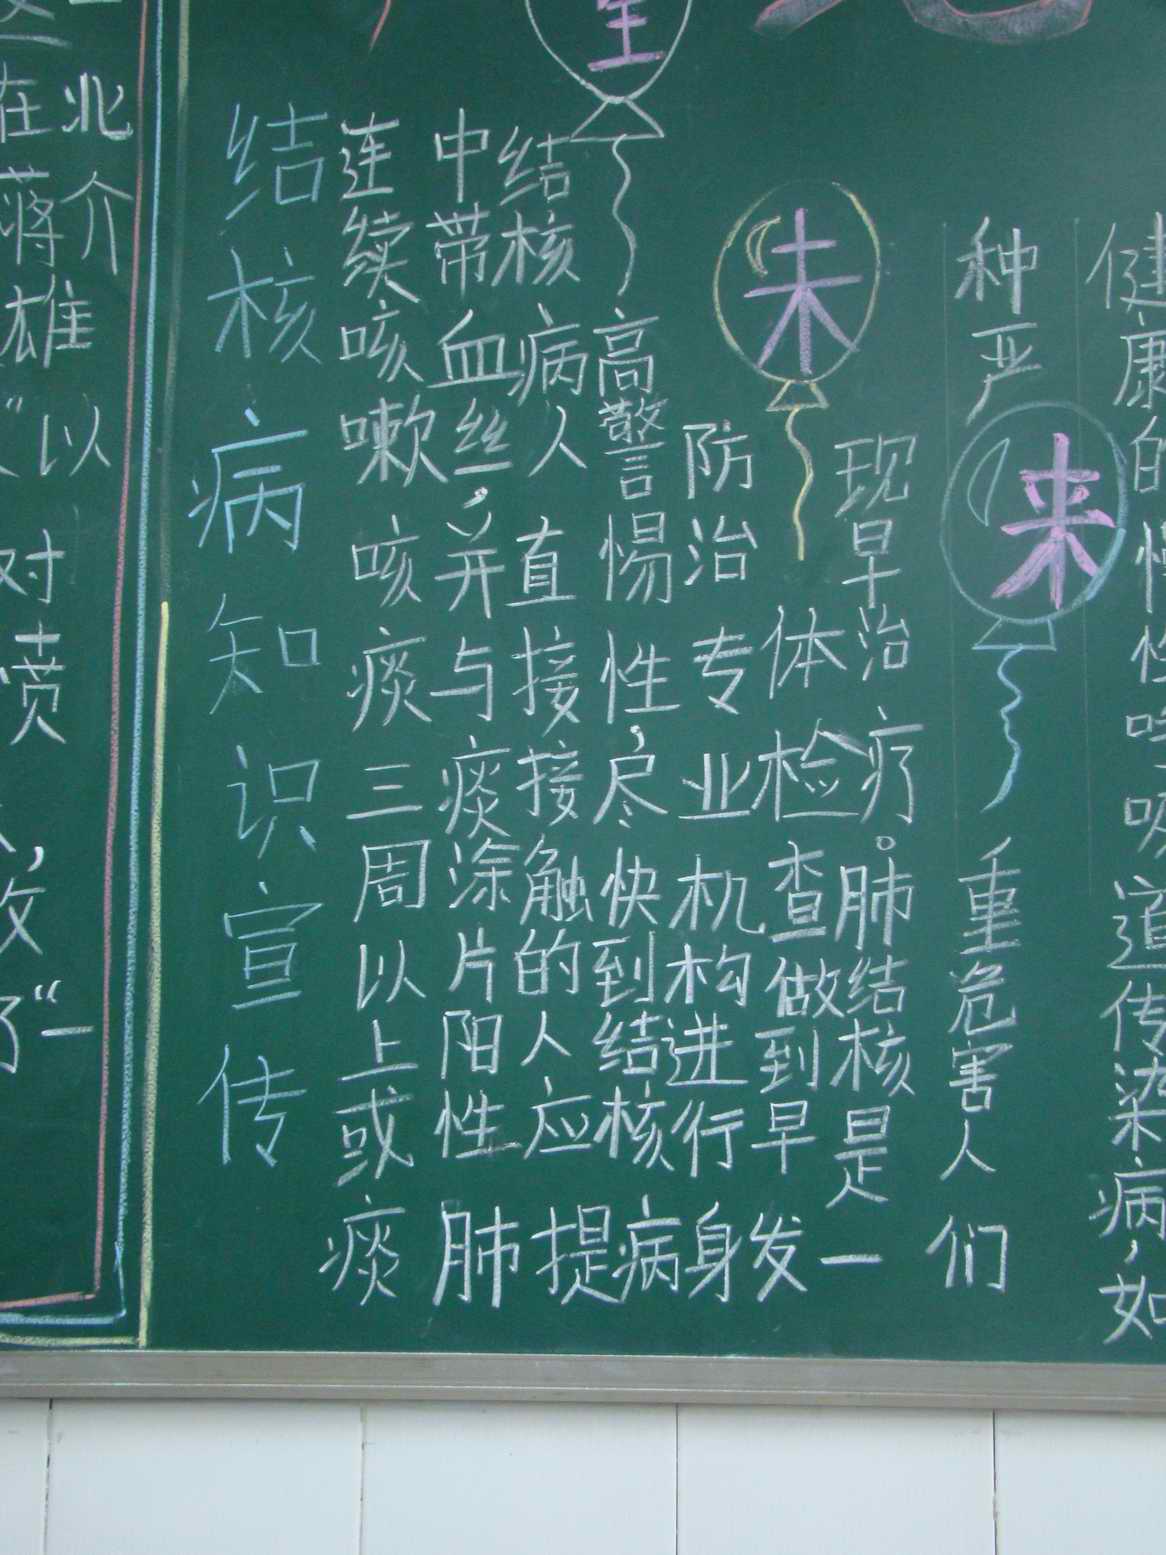 在北
蒋介
雄
”以
对
愤
，
攻
了“一
结核病知识宣传
连续咳嗽咳痰三周以上或痰
中带血丝，并与痰涂片阳性肺
结核病人直接接触的人应提
高警惕性，尽快到结核病
防治专业机构进行身
体检查做到早发
现早治疗。肺结核是一
种严重危害人们
健康的慢性呼吸道传染病，如
未
来